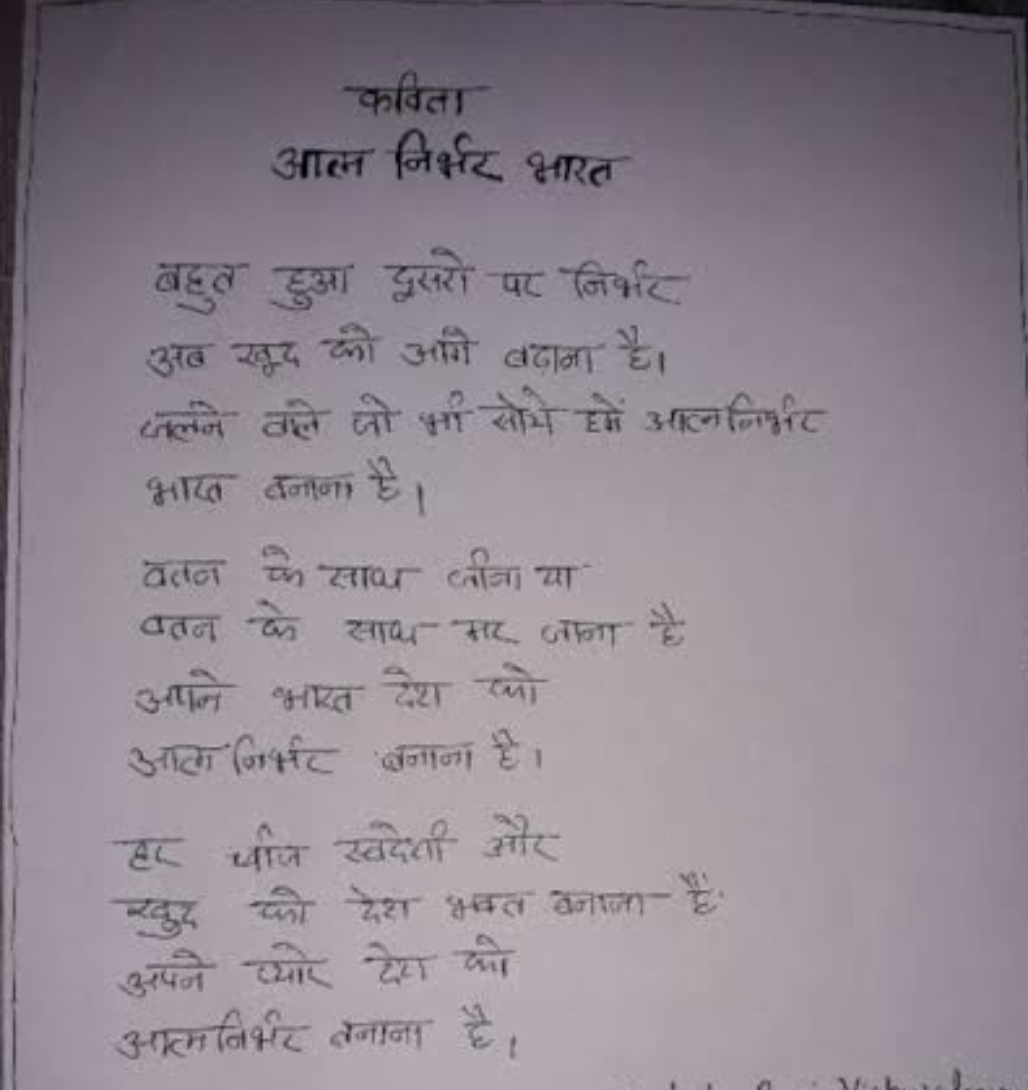 कविता
आत्म निर्भर भारत
बहुत हुआ दूसरो पर निर्भर
अब खूद को आगे बढाना है।
जलने वाले जो भी सोचे हमें आत्मनिर्भर
भारत बनाना है।
वतन के साथ जीना या
वतन के साथ मर जाना है
अपने भारत देश को
आत्मनिर्भर बनाना है।
हर चीज स्वदेशी और
खुद को देश भक्त बनाना है
अपने प्यारे देश को
आत्मनिर्भर बनाना है।